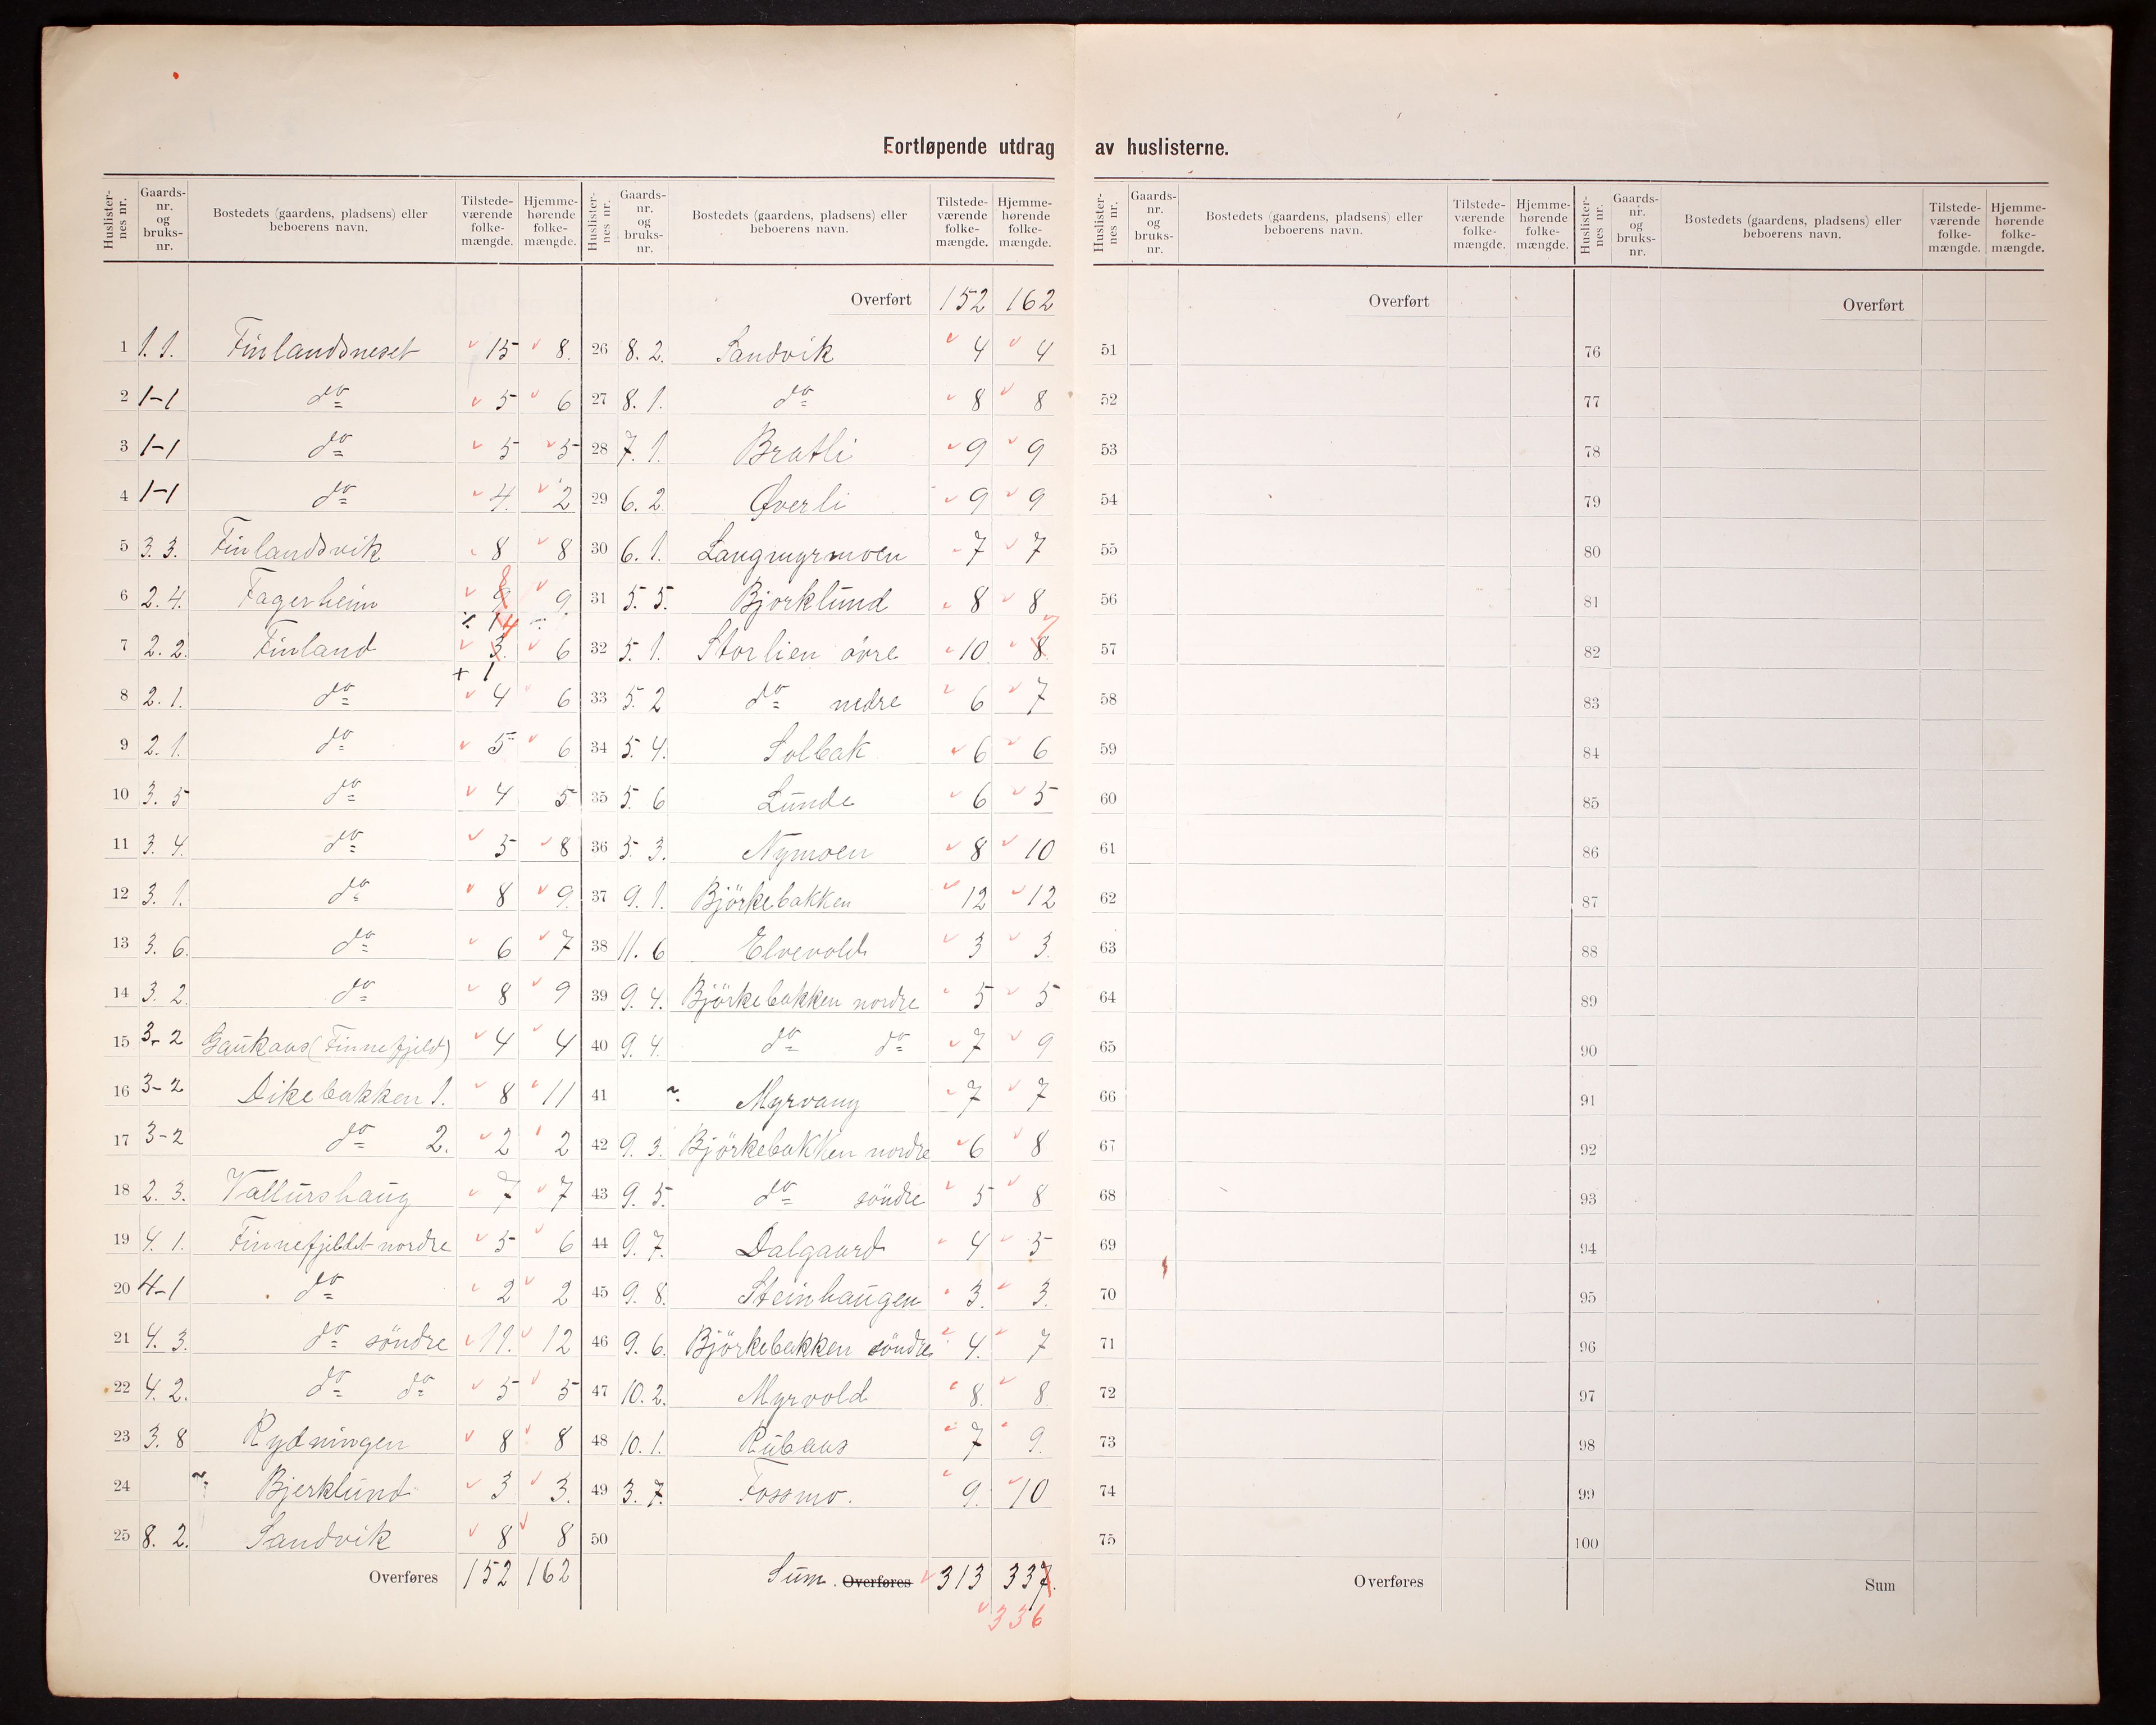 Fortløpende utdrag av huslisterne.
Huslisternes nr. Gaards-nr. og bruks-nr. Bostedets (gaardens, pladsens) eller beboerens navn. Tilstede-værende folke-mængde. Hjemme-hørende folke-mængde.
1 1.1. Finlandsneset 15 8.
2 1-1 do 5 6
3 1-1 do 5 5
4 1-1 do 4. 2
5 3.3. Finlandsvik 8 8
6 2.4. Fagerheim 9 8 9.
÷ 1
7 2.2. Finland 3. 4 6
+ 1
8 2.1. do 4 6
9 2.1. do 5 6
10 3.5 do 4 5
11 3.4. do 5 8
12 3.1. do 8 9.
13 3.6. do 6 7
14 3.2. do 8 9
15 3-2 Gaukaas (Finnefjeld) 4 4
16 3-2 Dikebakken 1. 8 11
17 3-2 do 2. 2 2
18 2.3. Vallurshaug 7 7
19 4.1. Finnefjeldet nordre 5 6
20 4-1 do 2 2
21 4.3. do söndre 11. 12
22 4.2. do do 5 5
23 3.8 Rydningen 8 8
24 Bjerklund 3 3.
25 8.2. Sandvik 8 8
Overføres 152 162
Huslisternes nr. Gaards-nr. og bruks-nr. Bostedets (gaardens, pladsens) eller beboerens navn. Tilstede-værende folke-mængde. Hjemme-hørende folke-mængde.
Overført 152 162
26 8.2. Sandvik 4 4
27 8.1. do 8 8
28 7.1. Bratli 9 9
29 6.2. Øverli 9 9
30 6.1. Langmyrmoen 7 7
31 5.5. Bjorklund 8 8
32 5.1. Storlien øvre 10 8 7
33 5.2 do nedre 6 7
34 5.4. Solbak 6 6
35 5.6 Lunde 6 5
36 5.3. Nymoen 8 10
37 9.1. Björkebakken 12 12
38 11.6 Elvevold 3 3.
39 9.4. Björkebakken nordre 5 5
40 9.4. do do 7 9
41 Myrvang 7 7
42 9.3. Björkebakken nordre 6 8
43 9.5. do söndre 5 8
44 9.7. Dalgaard 4 5
45 9.8. Steinhaugen 3. 3.
46 9.6. Björkebakken söndre 4. 7
47 10.2. Myrvold 8. 8.
48 10.1. Rubaas 7 9.
49 3.7. Fossmo. 9. 10
50
Sum. Overføres 313 337.
336
Huslisternes nr. Gaards-nr. og bruks-nr. Bostedets (gaardens, pladsens) eller beboerens navn. Tilstede-værende folke-mængde. Hjemme-hørende folke-mængde.
Overført
51
52
53
54
55
56
57
58
59
60
61
62
63
64
65
66
67
68
69
70
71
72
73
74
75
Overføres
Huslisternes nr. Gaards-nr. og bruks-nr. Bostedets (gaardens, pladsens) eller beboerens navn. Tilstede-værende folke-mængde. Hjemme-hørende folke-mængde.
Overført
76
77
78
79
80
81
82
83
84
85
86
87
88
89
90
91
92
93
94
95
96
97
98
99
100
Sum